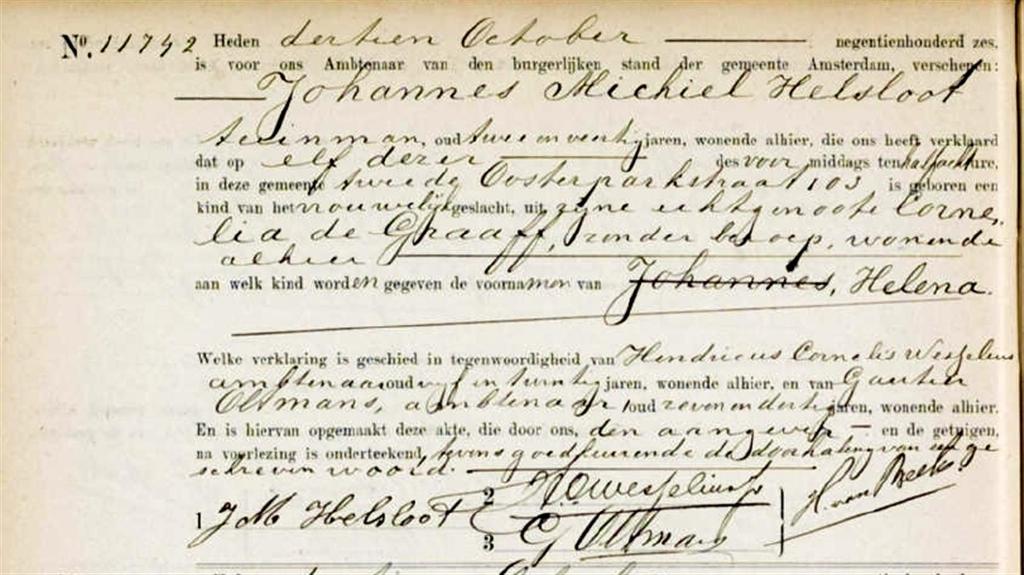 No. 11742 Heden dertien October negentienhonderd zes,
is voor ons Ambtenaar van den burgerlijken stand der gemeente Amsterdam, verschenen:
Johannes Michiel Helsloot
tuinman, oud twee en veertig jaren, wonende alhier, die ons heeft verklaard
dat op elf dezer des voor middags ten half acht ure,
in deze gemeente tweede Oosterparkstraat 103 is geboren een
kind van het vrouwelijk geslacht, uit zijne echtgenoote Corne-
lia de Graaff, zonder beroep, wonende
alhier
aan welk kind worden gegeven de voornamen van Johannes, Helena.
Welke verklaring is geschied in tegenwoordigheid van Hendricus Cornelis Wesselius
ambtenaar oud vijf en twintig jaren, wonende alhier, en van
Oltmans, ambtenaar oud zeven en dertig jaren, wonende alhier.
En is hiervan opgemaakt deze akte, die door ons, den aangever en de getuigen,
na voorlezing is onderteekend, tevens goedkeurende de doorhaling van een ge
schreven woord.
1 J M Helsloot
2 H C Wesselius
3 G Oltmans
H. van Beek